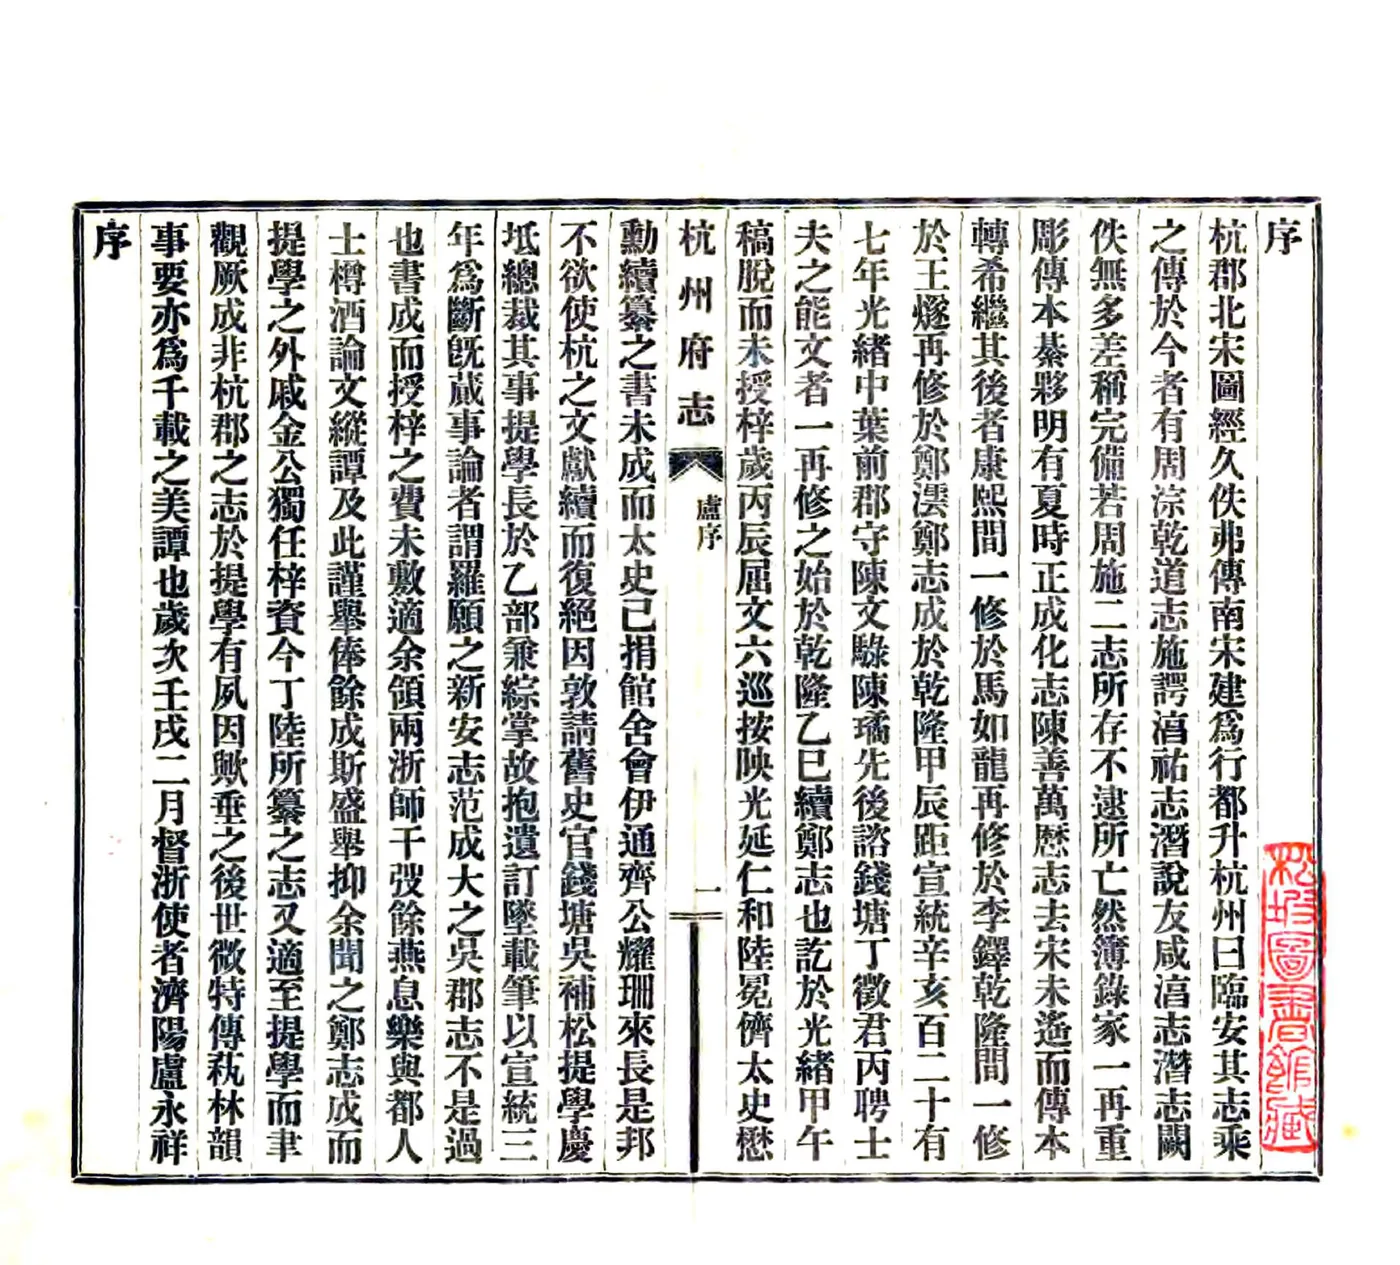 序
杭郡北宋圖經久佚弗傳南宋建爲行都升杭州曰臨安其志乘
之傳於今者有周淙乾道志施諤淳祐志潛說友咸淳志潛志闕
佚無多差稱完備若周施二志所存不逮所亡然簿錄家一再重
彫傳本綦夥明有夏時正成化志陳善萬歷志去宋未遙而傳本
轉希繼其後者康熙間一修於馬如龍再修於李鐸乾隆間一修
於王燧再修於鄭澐鄭志成於乾隆甲辰距宣統辛亥百二十有
七年光緒中葉前郡守陳文騄陳璚先後諮錢塘丁徵君丙聘士
夫之能文者一再修之始於乾隆乙巳續鄭志也訖於光緒甲午
稿脫而未授梓歲丙辰屈文六巡按映光延仁和陸冕儕太史懋
杭州府志
盧序
一
勳續纂之書未成而太史已捐館舍會伊通齊公耀珊來長是邦
不欲使杭之文獻續而復絕因敦請舊史官錢塘吳補松提學慶
坻總裁其事提學長於乙部兼綜掌故抱遺訂墜載筆以宣統三
年爲斷旣蕆事論者謂羅願之新安志范成大之吳郡志不是過
也書成而授梓之費未敷適余領兩浙師干弢餘燕息樂與都人
士樽酒論文縱譚及此謹舉俸餘成斯盛舉抑余聞之鄭志成而
提學之外戚金公獨任梓資今丁陸所纂之志又適至提學而聿
觀厥成非杭郡之志於提學有夙因歟垂之後世微特傳萟林韻
事要亦爲千載之美譚也歲次壬戌二月督浙使者濟陽盧永祥
序
松坡圖書館藏